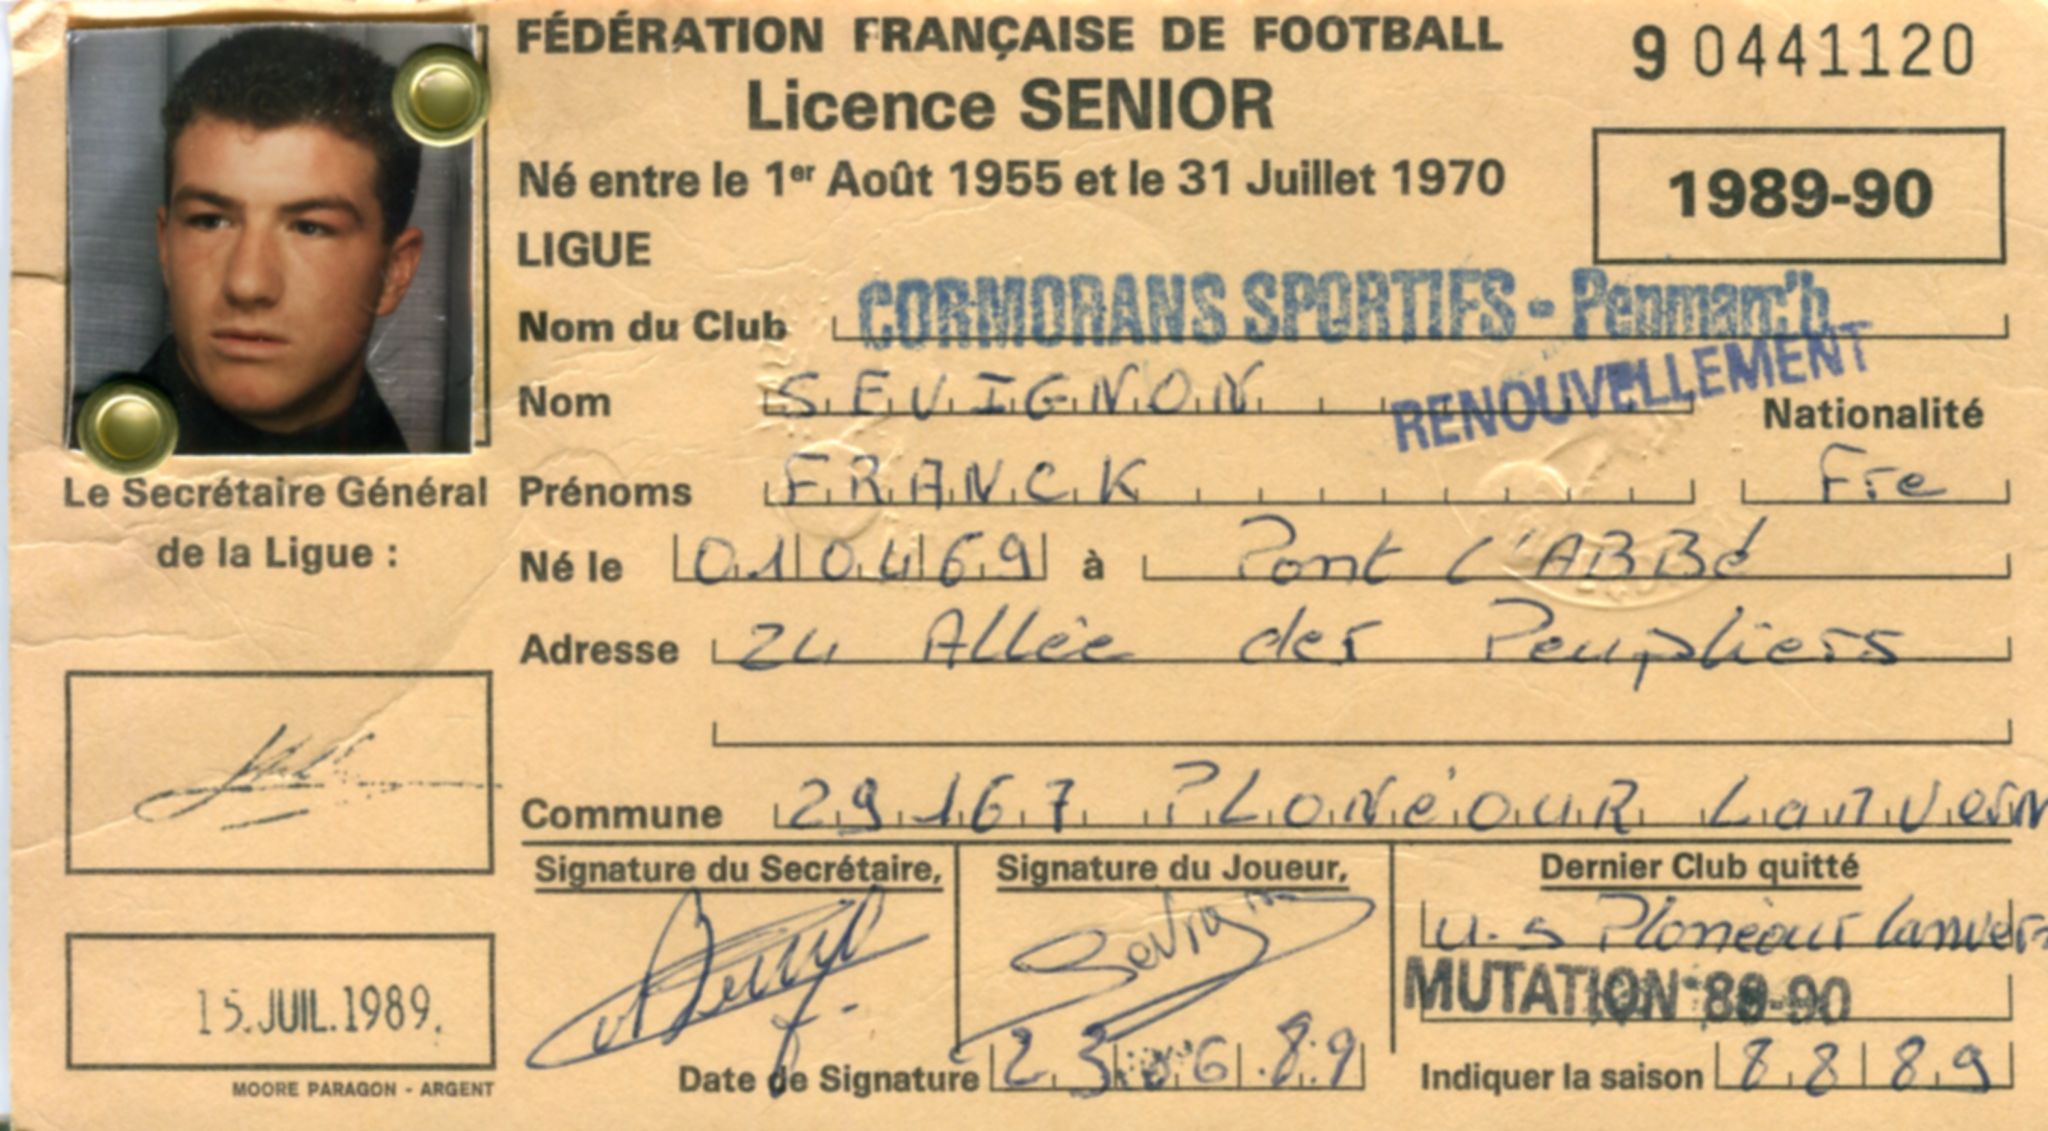 FÉDÉRATION FRANÇAISE DE FOOTBALL
9 0441120
Licence SENIOR
Né entre le 1er Août 1955 et le 31 Juillet 1970
1989-90
LIGUE
Nom du Club CORMORANS SPORTIFS - Penmarc'h
RENOUVELLEMENT
Nom SEVIGNON
Nationalité
Prénoms FRANCK Fre
Le Secrétaire Général
de la Ligue :
Né le 010469 à Pont l'ABBé
Adresse 24 Allée des Peupliers
Commune 29167 PLONéOUR LanVern
Signature du Secrétaire,
Signature du Joueur,
Sevignon
Dernier Club quitté
U.S Plonéour Lanvern
MUTATION 89-90
15. JUIL. 1989.
Date de Signature 23.06.89
Indiquer la saison 88 89
MOORE PARAGON - ARGENT